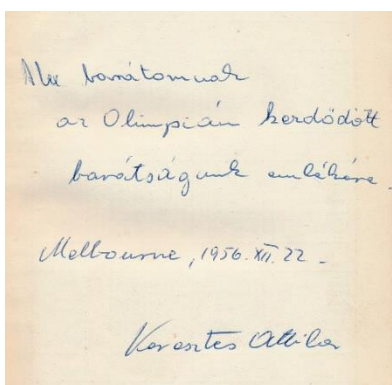 Alex barátomnak
az Olimpián kezdődött
barátságunk emlékére.
Melbourne, 1956. XII. 22.
Keresztes Attila